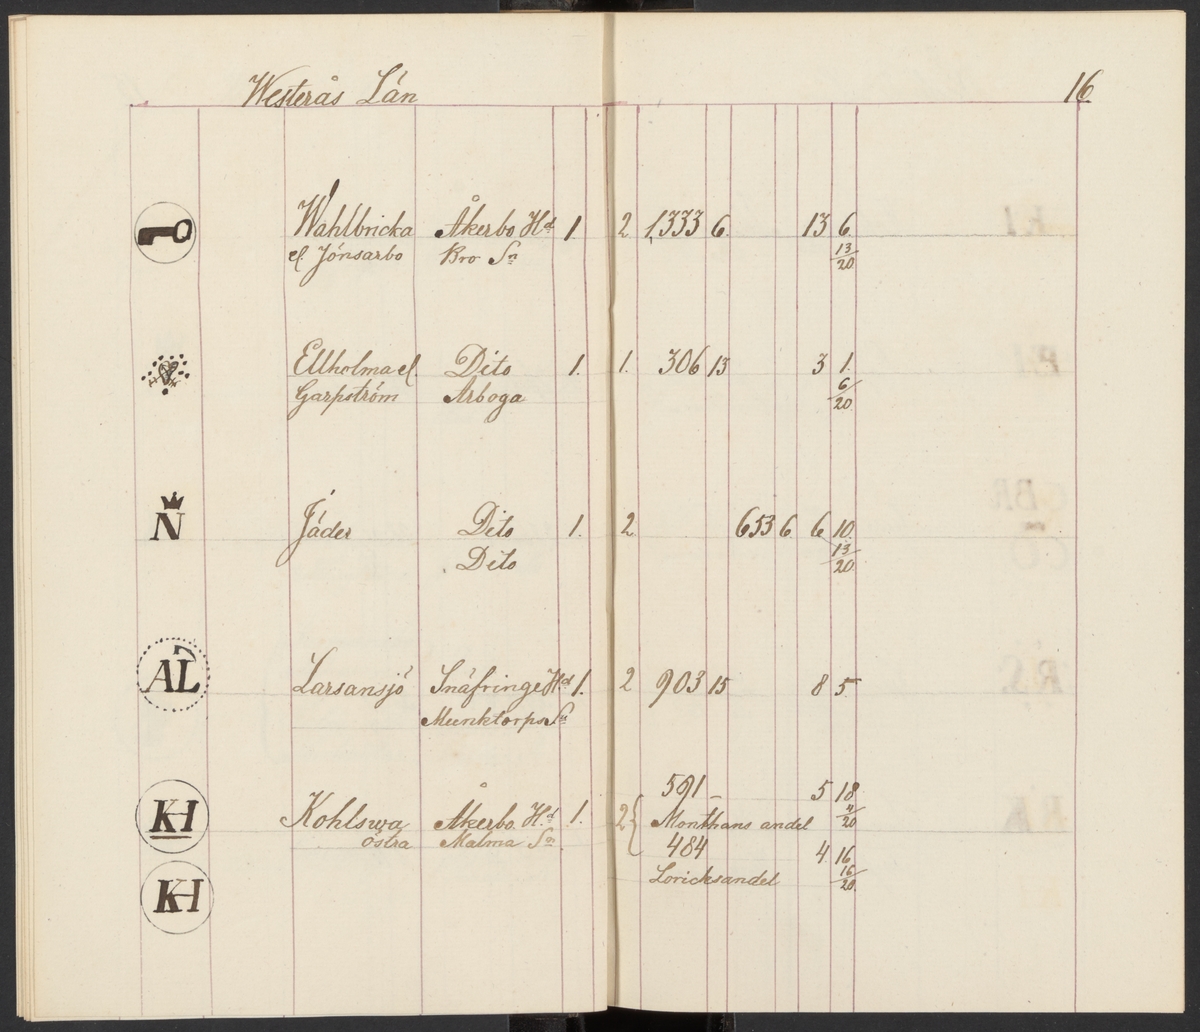 Westerås Län 16
Wahlbricka Åkerbo Hd 1. 2 1,333 6. 13 6.
el Jönsarbo Bro Sn 13/20
Ellholma el Dito 1. 1. 306 13 3 1.
Garpström Arboga 6/20
N Jäder Dito 1. 2 653 6. 6 10.
Dito 13/20
AL Larsansjö Snäfringe Hd 1. 2 903 15 8 5.
Munktorps Sn
591 – 5 18
KH Kohlswa Åkerbo Hd 1. 2 { Monthans andel 4/20
östra Malma Sn 484 4 16
KH Loricksandel 16/20